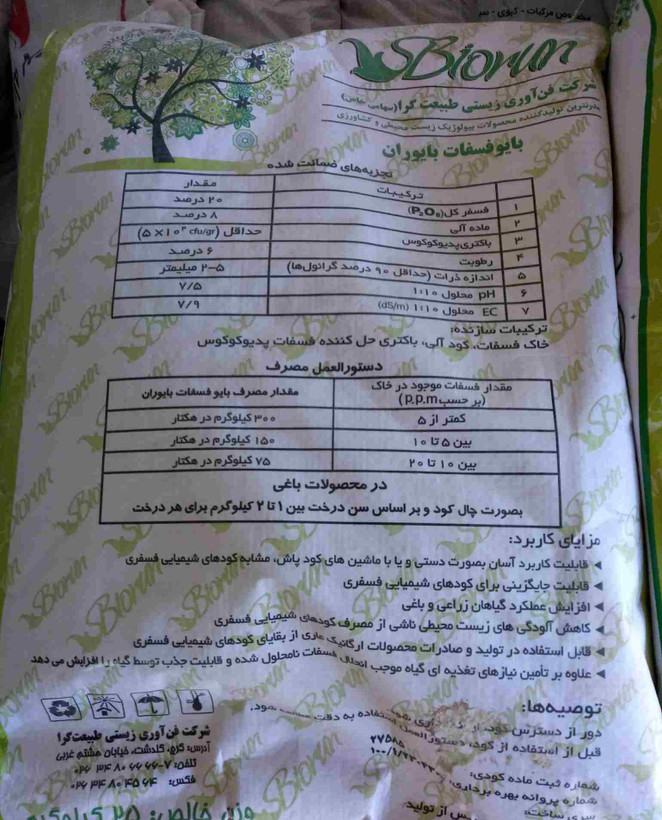 مخصوص مرکبات - کیوی - سیب
SBiorun
شرکت فن‌آوری زیستی طبیعت گرا (سهامی خاص)
مدرنترین تولیدکننده محصولات بیولوژیک زیست محیطی و کشاورزی
بایوفسفات بایوران
تجزیه‌های ضمانت شده
ترکیبات مقدار
۱ فسفر کل (P₂O₅) ۲۰ درصد
۲ ماده آلی ۸ درصد
۳ باکتری پدیوکوکوس حداقل (۵×۱۰³ cfu/gr)
۴ رطوبت ۶ درصد
۵ اندازه ذرات (حداقل ۹۰ درصد گرانول‌ها) ۲-۵ میلیمتر
۶ pH محلول ۱:۱۰ ۷/۵
۷ EC محلول ۱:۱۰ (dS/m) ۷/۹
ترکیبات سازنده:
خاک فسفات، کود آلی، باکتری حل کننده فسفات پدیوکوکوس
دستورالعمل مصرف
مقدار فسفات موجود در خاک (بر حسب p.p.m) مقدار مصرف بایو فسفات بایوران
کمتر از ۵ ۳۰۰ کیلوگرم در هکتار
بین ۵ تا ۱۰ ۱۵۰ کیلوگرم در هکتار
بین ۱۰ تا ۲۰ ۷۵ کیلوگرم در هکتار
در محصولات باغی
بصورت چال کود و بر اساس سن درخت بین ۱ تا ۲ کیلوگرم برای هر درخت
مزایای کاربرد:
قابلیت کاربرد آسان بصورت دستی و یا با ماشین های کود پاش، مشابه کودهای شیمیایی فسفری
قابلیت جایگزینی برای کودهای شیمیایی فسفری
افزایش عملکرد گیاهان زراعی و باغی
کاهش آلودگی های زیست محیطی ناشی از مصرف کودهای شیمیایی فسفری
قابل استفاده در تولید و صادرات محصولات ارگانیک عاری از بقایای کودهای شیمیایی فسفری
علاوه بر تأمین نیازهای تغذیه ای گیاه موجب انحلال فسفات نامحلول شده و قابلیت جذب توسط گیاه را افزایش می دهد
توصیه‌ها:
دور از دسترس
قبل از استفاده از کود، دستورالعمل استفاده به دقت شود.
شماره ثبت ماده کودی: ۲۷۵۸۵
شماره پروانه بهره برداری:
سری ساخت:
پس از تولید
شرکت فن‌آوری زیستی طبیعت‌گرا
آدرس: کرج، گلدشت، خیابان هشتم غربی
تلفن: ۷-۰۲۶ ۳۴ ۸۰ ۶۶ ۶۶
فکس: ۰۲۶ ۳۴ ۸۰ ۴۵ ۶۴
وزن خالص: ۲۵ کیلوگرم